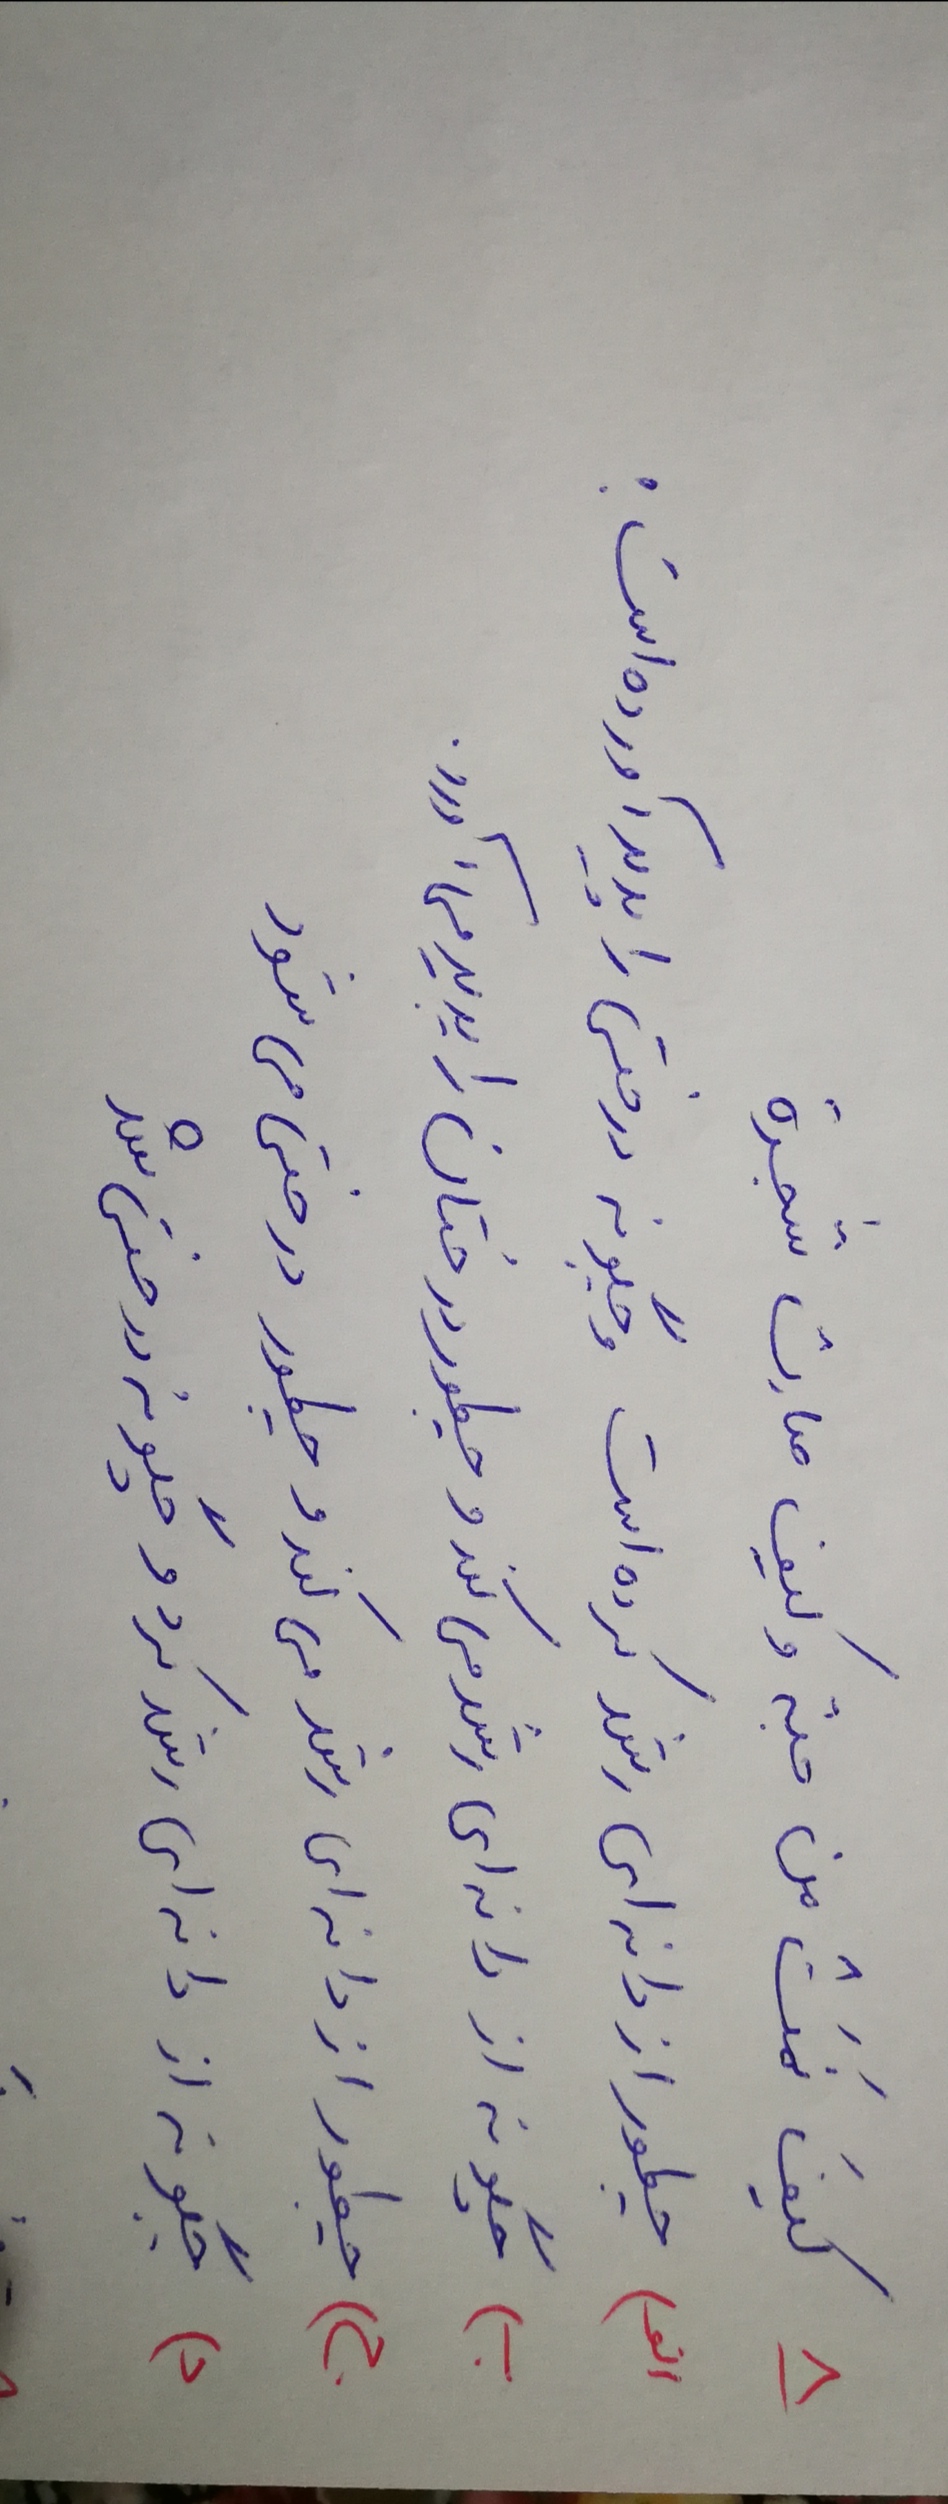 ۸ کیفَ نَمَتْ من حبّة و کیف صارتْ شَجَرة
الف) چطور از دانه‌ای رشد کرده است و چگونه درختی را پدید آورده است :
ب) چگونه از دانه‌ای رشد می کند و چطور درختان را پدید می آورد .
ج) چطور از دانه‌ای رشد می کند و چطور درختی می شود
د) چگونه از دانه‌ای رشد کرد و چگونه درختی شد